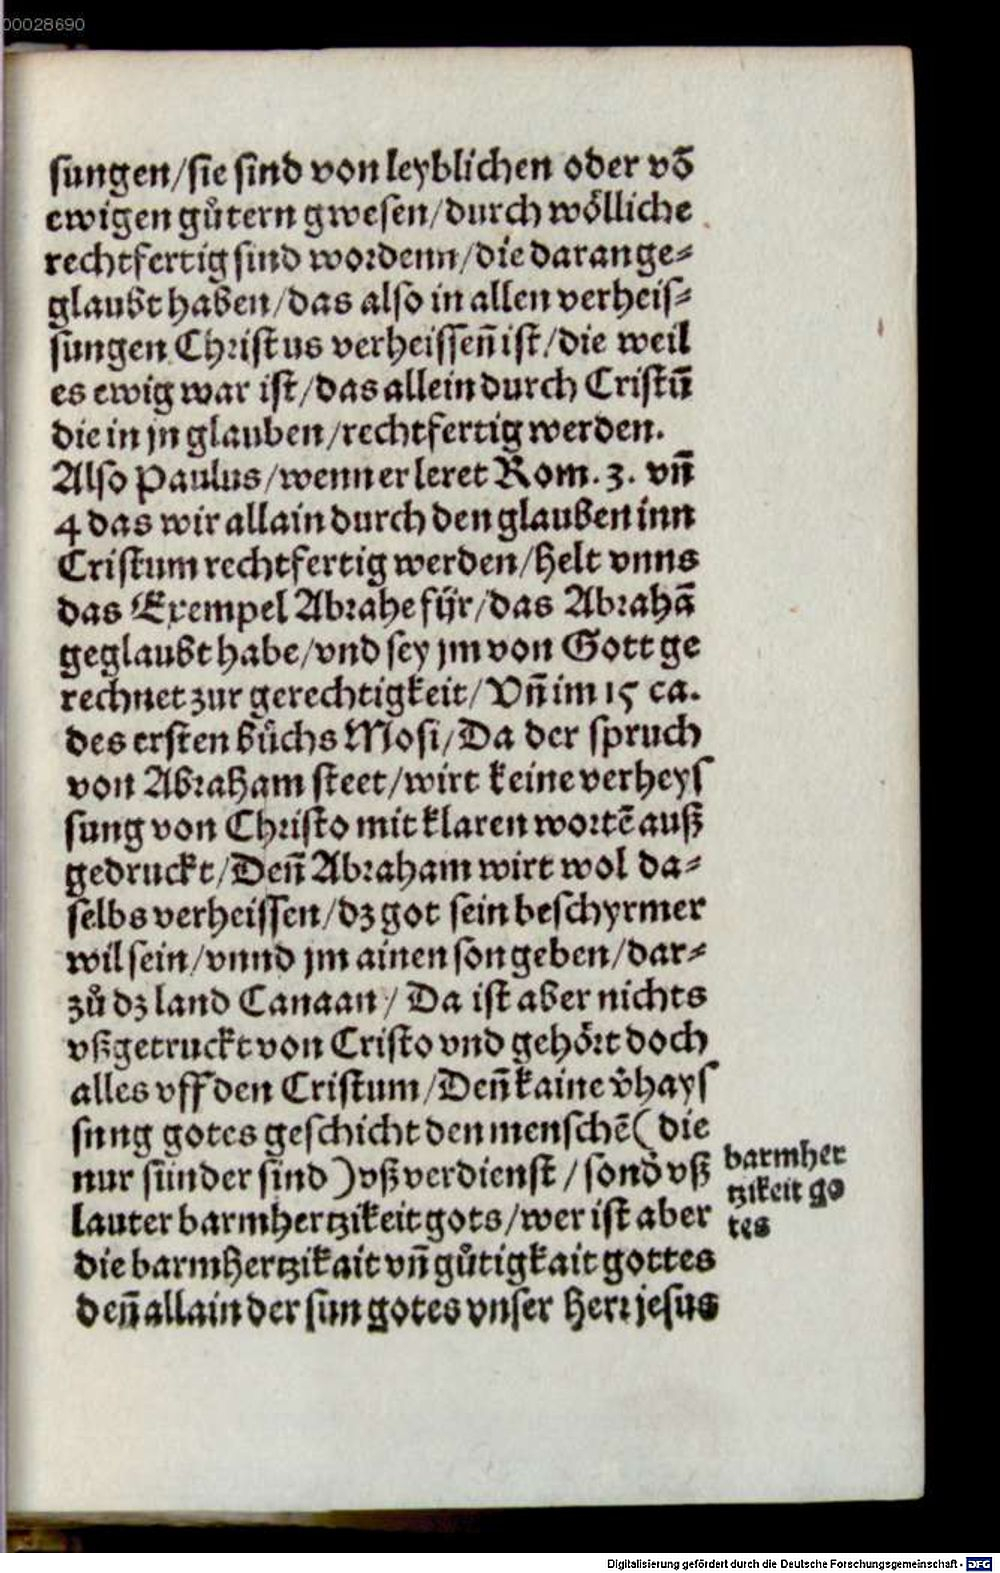 00028690
sungen/sie sind von leyblichen oder vō
ewigen gůtern gwesen/durch wölliche
rechtfertig sind wordenn/die darange⸗
glaubt haben/das also in allen verheis⸗
sungen Christus verheissen̄ ist/die weil
es ewig war ist/das allein durch Cristū
die in jn glauben/rechtfertig werden.
Also Paulus/wenn er leret Rom. 3. vn̄
4 das wir allain durch den glauben inn
Cristum rechtfertig werden/helt vnns
das Exempel Abrahe für/das Abrahā
geglaubt habe/vnd sey jm von Gott ge
rechnet zur gerechtigkeit/Vn̄ im 15 ca.
des ersten bůchs Mosi/Da der spruch
von Abraham steet/wirt keine verheys
sung von Christo mit klaren wortē auß
gedruckt/Den̄ Abraham wirt wol da⸗
selbs verheissen/dz got sein beschyrmer
wil sein/vnnd jm ainen son geben/dar⸗
zů dz land Canaan/Da ist aber nichts
vßgetruckt von Cristo vnd gehört doch
alles vff den Cristum/Den̄ kaine v̄hays
sung gotes geschicht den menschē(die
nur sünder sind)vß verdienst/sond̄ vß
lauter barmhertzikeit gots/wer ist aber
die barmhertzikait vn̄ gůtigkait gottes
den̄ allain der sun gotes vnser herr jesus
barmher
tzikeit go
tes
Digitalisierung gefördert durch die Deutsche Forschungsgemeinschaft - DFG